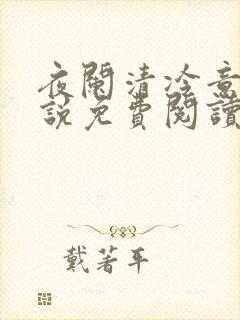 夜闌清冷意
說免費閱讀
戴著平